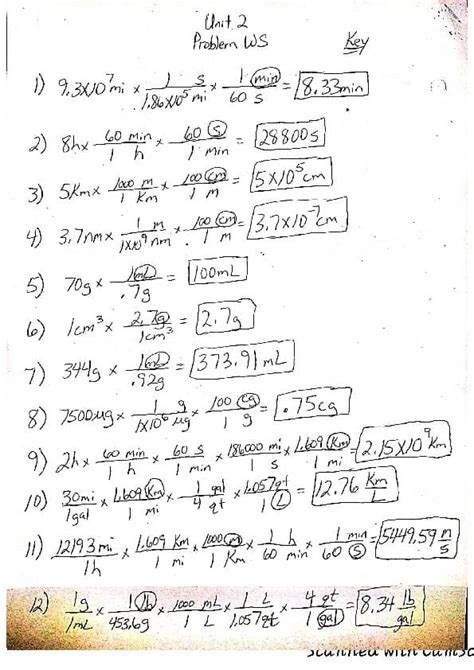 Unit 2
Problem WS Key
1) 9.3x10⁷ mi x 1 s / 1.86x10⁵ mi x 1 min / 60 s = 8.33min
2) 8h x 60 min / 1 h x 60 s / 1 min = 28800s
3) 5Km x 1000 m / 1 Km x 100 cm / 1 m = 5x10⁵cm
4) 3.7nm x 1 m / 1x10⁹ nm x 100 cm / 1 m = 3.7x10⁻⁷cm
5) 70g x 1mL / .7g = 100mL
6) 1cm³ x 2.7g / 1cm³ = 2.7g
7) 344g x 1mL / .92g = 373.91 mL
8) 7500µg x 1 g / 1x10⁶ µg x 100 cg / 1 g = .75cg
9) 2h x 60 min / 1 h x 60 s / 1 min x 186000 mi / 1 s x 1.609 Km / 1 mi = 2.15x10⁹ Km
10) 30mi / 1gal x 1.609 Km / 1 mi x 1 gal / 4 qt x 1.057qt / 1 L = 12.76 Km / L
11) 12193mi / 1h x 1.609 Km / 1 mi x 1000 m / 1 Km x 1 h / 60 min x 1 min / 60 s = 5449.59 m / s
12) 1g / 1mL x 1 lb / 453.6g x 1000 mL / 1 L x 1 L / 1.057qt x 4 qt / 1 gal = 8.34 lb / gal
Scanned with CamSc